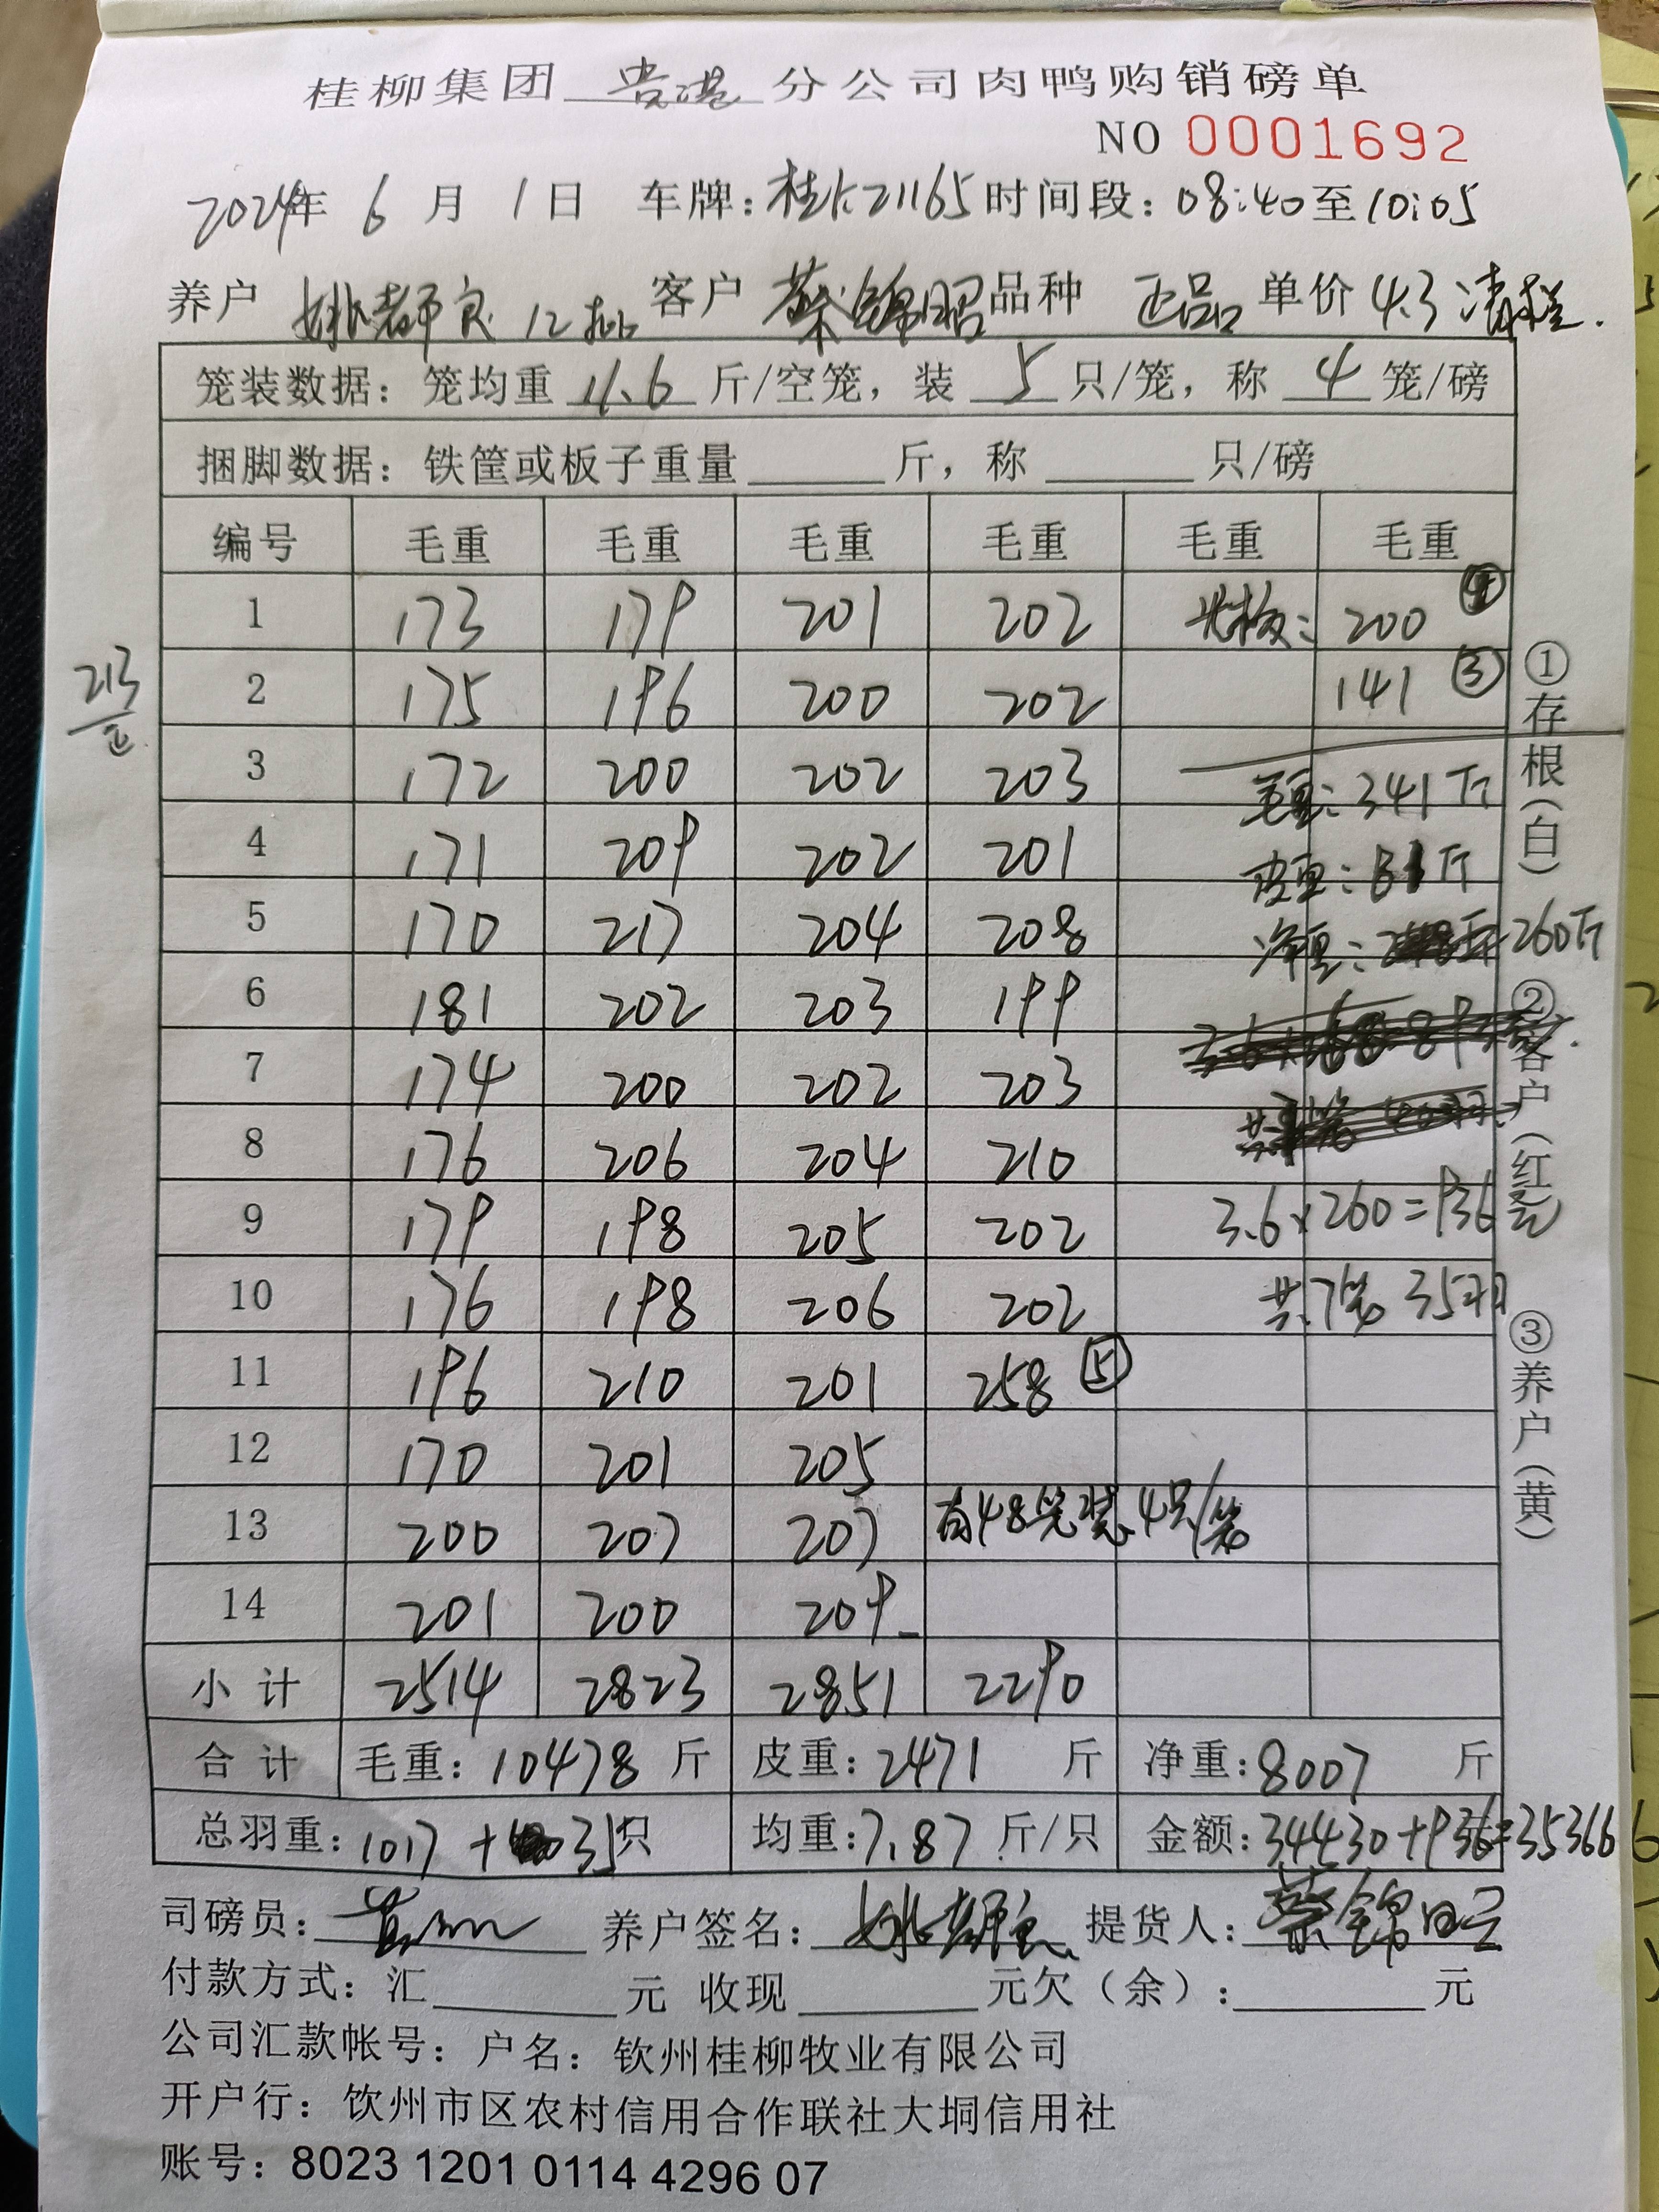 桂柳集团 贵港 分公司肉鸭购销磅单
NO 0001692
2024年 6 月 1 日 车牌:桂K21165 时间段:08:40至10:05
养户 姚 良 12批 客户 蔡锦昭 品种 正品 单价 4.3 清
笼装数据:笼均重 11.6 斤/空笼,装 5 只/笼,称 4 笼/磅
捆脚数据:铁筐或板子重量 斤,称 只/磅
编号 毛重 毛重 毛重 毛重 毛重 毛重
1 173 179 201 202 次板: 200 ④
2 175 196 200 202 141 ③
213
3 172 200 202 203 毛重:341斤
4 171 209 202 201 皮重:81斤
5 170 217 204 208 净重: 260斤
6 181 202 203 199
7 174 200 202 203
8 176 206 204 210
9 179 198 205 202 3.6×260=936元
10 176 198 206 202 共7笼 35羽
11 196 210 201 258 ⑤
12 170 201 205
13 200 207 207 有48笼装4只/笼
14 201 200 209
小计 2514 2823 2851 2290
合计 毛重:10478 斤 皮重:2471 斤 净重:8007 斤
总羽重:1017 + 35只 均重:7.87 斤/只 金额:34430+936=35366
司磅员: 养户签名:姚 良 提货人:蔡锦昭
付款方式:汇 元 收现 元欠(余): 元
公司汇款帐号:户名:钦州桂柳牧业有限公司
开户行:钦州市区农村信用合作联社大垌信用社
账号:8023 1201 0114 4296 07
①存根(白)
②客户(红)
③养户(黄)